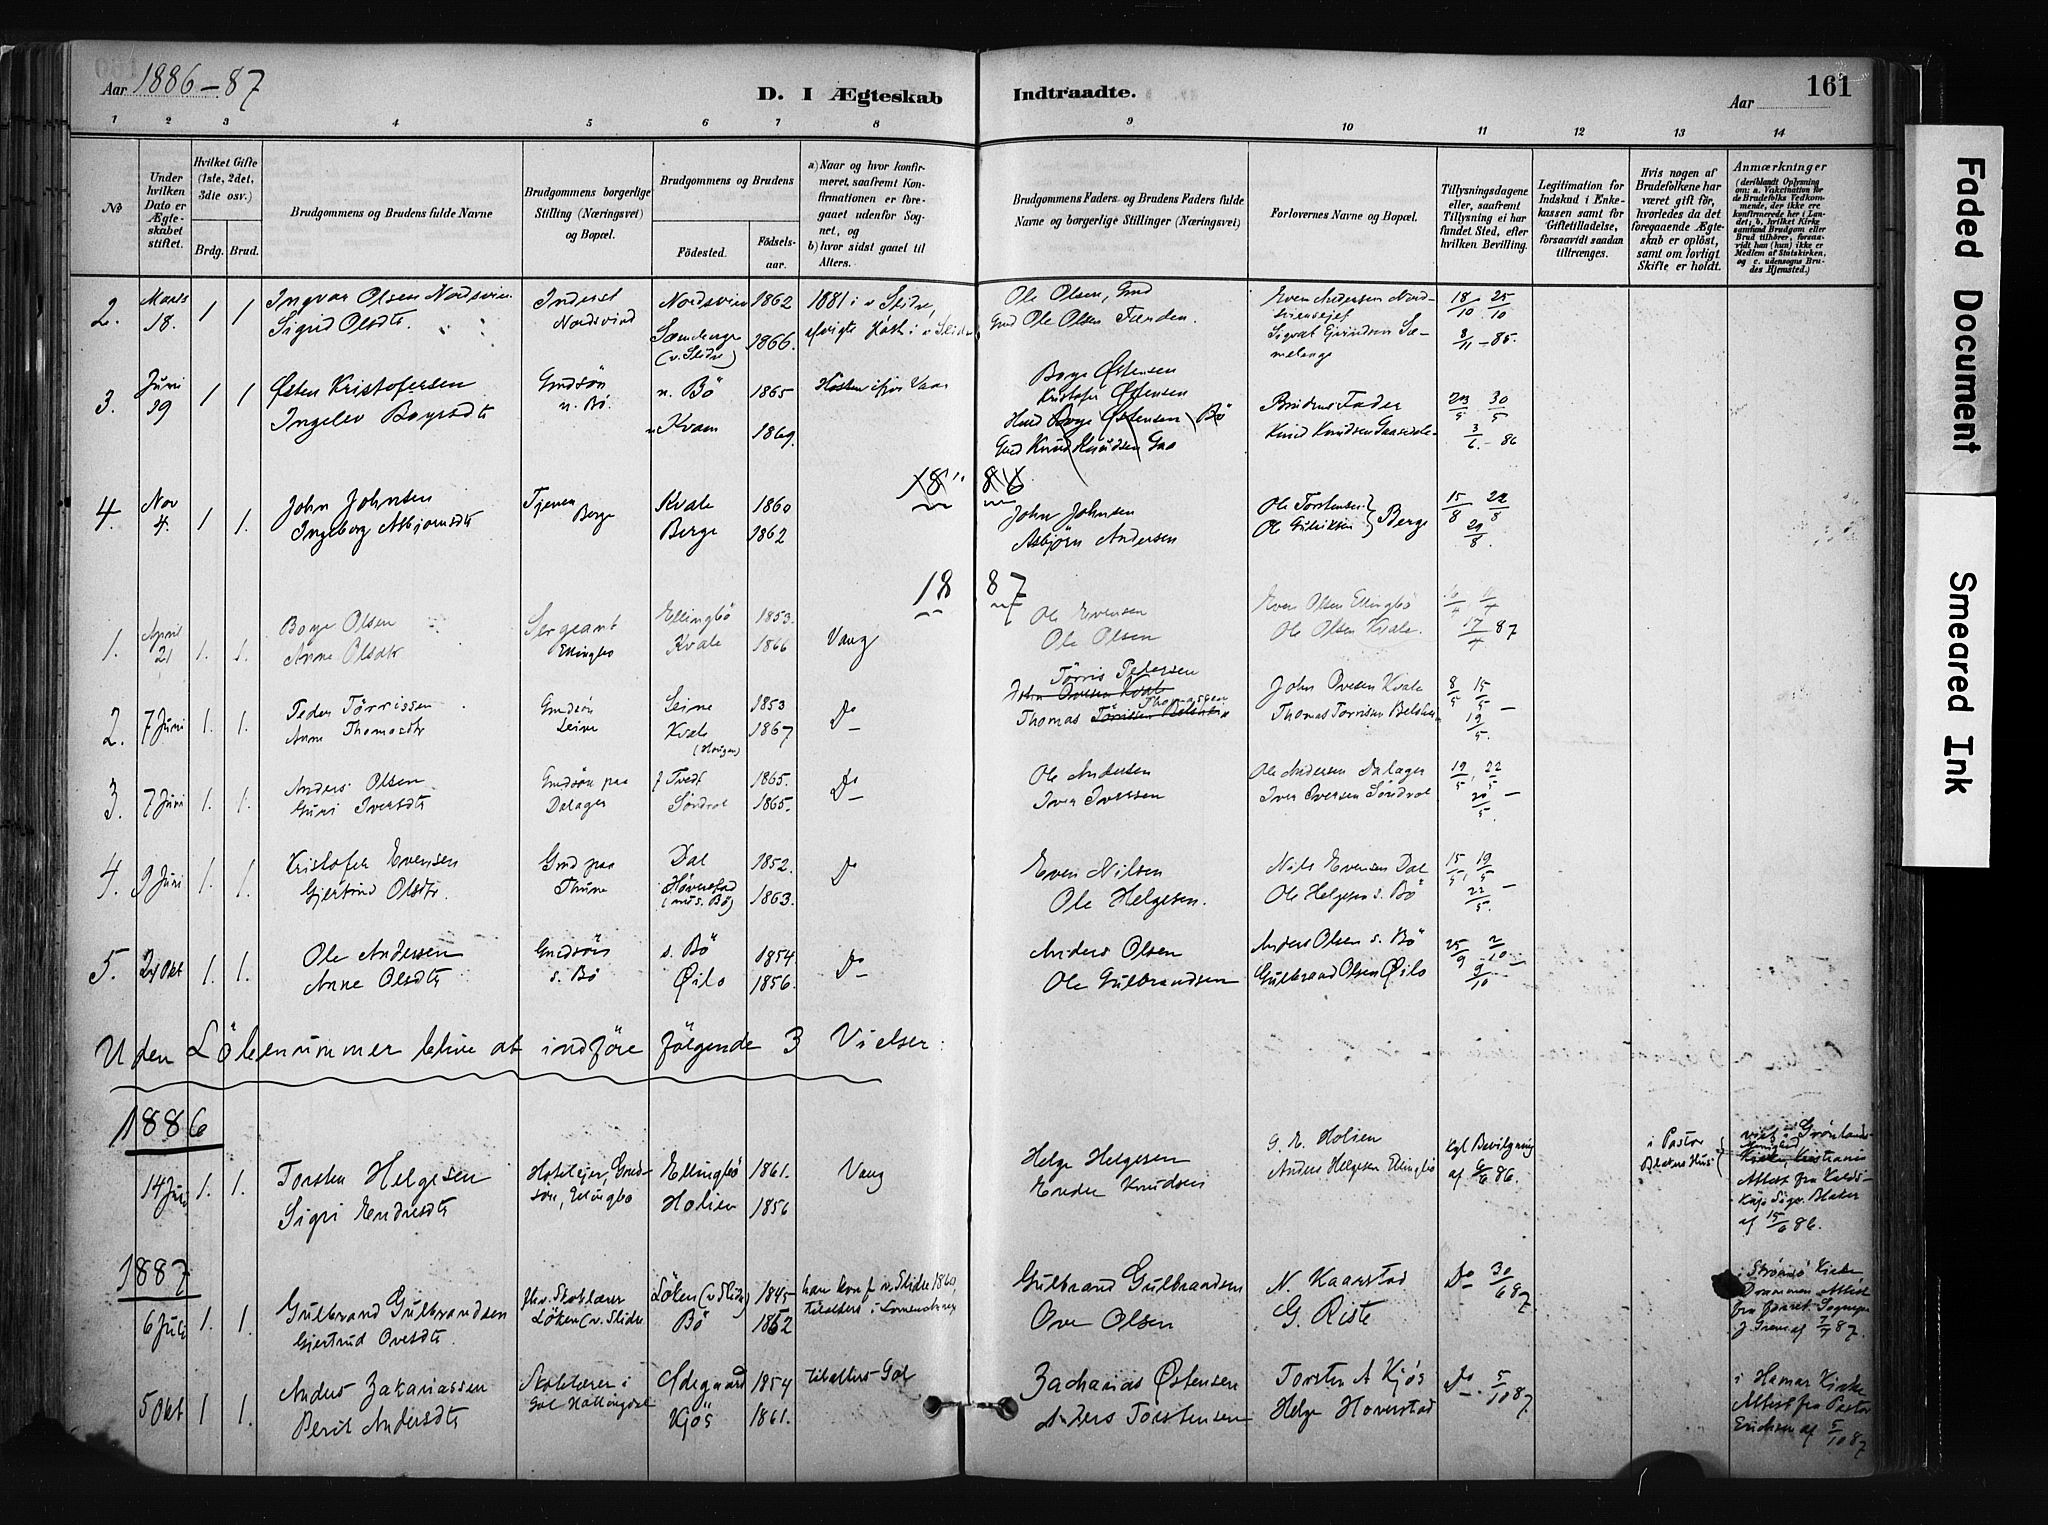 Aar 1886-87
D. I Ægteskab Indtraadte.
161
Aar
1 2 3 4 5 6 7 8 9 10 11 12 13 14
No
Under hvilken Dato er Ægteskabet stiftet.
Hvilket Gifte (1ste, 2det, 3die osv.)
Brdg. Brud.
Brudgommens og Brudens fulde Navne
Brudgommens borgerlige Stilling (Næringsvei) og Bopæl.
Brudgommens og Brudens
Födested. Födselsaar.
a) Naar og hvor konfirmeret, saafremt Konfirmationen er foregaaet udenfor Sognet, og
b) hvor sidst gaaet til Alters.
Brudgommens Faders- og Brudens Faders fulde Navne og borgerlige Stillinger (Næringsvei)
Forlovernes Navne og Bopæl.
Tillysningsdagene eller, saafremt Tillysning ei har fundet Sted, efter hvilken Bevilling.
Legitimation for Indskud i Enkekassen samt for Giftetilladelse, forsaavidt saadan tiltrænges.
Hvis nogen af Brudefolkene har været gift før, hvorledes da det foregaaende Ægteskab er oplöst, samt om lovligt Skifte er holdt.
Anmærkninger (deriblandt Oplysning om: a. Vaccination for de Brudefolks Vedkommende, der ikke ere konfirmerede her i Landet; b. hvilket Kirkesamfund Brudgom eller Brud tilhörer, forsaavidt han (hun) ikke er Medlem af Statskirken, og c. udensogns Brudes Hjemsted.)
2. Marts 18. 1 1 Ingvar Olsen Nordsvien Inderst Nordsvind Nordsvien 1862 1881 i v. Slidre, Ole Olsen, Gmd 18/10 25/10
Sigrid Olsdtr. (v. Slidre) 1866. Gmd Ole Olsen 8/11 - 85.
3. Juni 29 1 1 Østen Kristofersen Gmdsön n. Bö. n. Bö 1865 Høsten ifjor Vang Borge Østensen
Kristofer Østensen Brudens Fader 23/5 30/5
Ingelev Borgesdtr Kvam 1869. Borge Østensen Bö
Gmd Knud Knudsen Knud Knudsen 3/6 - 86
18 86
4. Nov 4. 1. 1. John Johnsen Tjener Berge Kvale 1860 John Johnsen Ole Torstensen 15/8 22/8
Ingeborg Asbjørnsdtr Berge 1862 Asbjörn Andersen Ole Gulriksen Berge 29/8.
18 87
1. April 21 1. 1. Borge Olsen Sergeant Ellingbö Ellingbö 1853. Vang Ole Evensen Even Olsen Ellingbö
Anne Olsdtr Kvale 1866 Ole Olsen Ole Olsen Kvale. 17/4 87
Törris Pedersen
2. 7 Juni 1. 1. Peder Törrissen Gmdsön Leine Leine 1853 Do John Ovesen Kvale John Ovesen Kvale 8/5 15/5 -
Anne Thomasdtr Kvale (Haugen) 1867 Thomas Thomassen Thomas Torrisen 19/5.
3. 7 Juni 1. 1. Anders Olsen Gmdsön paa Dalager Tvedt 1865. Do Ole Andersen Ole Andersen Dalager 19/5, 22/5 -
Guri Iversdtr Söndrol 1865. Iver Iversen Iver Iversen Söndrol 20/5.
4. 9 Juni 1. 1. Kristofer Evensen Gmd paa Thune Dal 1852. Do Even Nilsen Nils Evensen Dal 15/5, 19/5 -
Gjertrud Olsdtr. Höverstad 1863. Ole Helgesen. Ole Helgesen s. Bö 22/5.
5. 24 Okt 1. 1. Ole Andersen Gmdsön s. Bö s. Bö 1854 Do Anders Olsen Anders Olsen s. Bö 25/9 2/10 -
Anne Olsdtr Øilo 1856. Ole Gulbrandsen Gulbrand Olsen Øilo 9/10
Uden Löbenummer blive at indföre fölgende 3 Vielser:
1886
14 Juni 1. 1. Torsten Helgesen Gmdsön, Ellingbö Ellingbö 1861. Vang Helge Helgesen G. E. Holien Kgl Bevilgning af 9/6 86. i Pastor Blakers Hus
Sigri Endresdtr Holien 1856 Endre Knudsen Anders Helgesen Ellingbö
viet i Grönlands Kirke, Kristiania
Attest fra
Blaker
af 15/6 86.
1887
6 Juli 1. 1. Gulbrand Gulbrandsen fhv. Skolelærer Löken (v. Slidre Löken (v Slidre) 1845 han konf v. Slidre 1860, Gulbrand Gulbrandsen N. Kaarstad Do 30/6 87.
Gjertrud Ovesdtr. Bö 1862 Ove Olsen G. Riste
i Strömsö Kirke
Drammen Attest
af 7/7 87.
5 Okt 1 1. Anders Zakariassen Skolelærer i Gol Hallingdal Ødegaard 1854 til alters Gol Zacharias Østensen Torsten A Kjös Do 5/10 87.
Berit Andersdtr Kjös 1861. Anders Torstensen Helge Hoverstad
i Hamar Kirke
Attest fra Pastor
Erichsen af 5/10 87
Faded Document
Smeared Ink